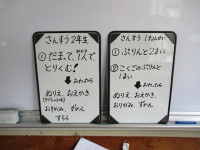 さんすう2年生
① だまって、1人で
とりくむ!
↓おわったら
ぬりえ、おえかき、
(タブレット×)
おりがみ、ずかん
すらら
さんすう 1ねんせい
① ぷりんと2まい
② こくごのぷりんと
1まい
↓おわったら
ぬりえ、おえかき
おりがみ、ずかん